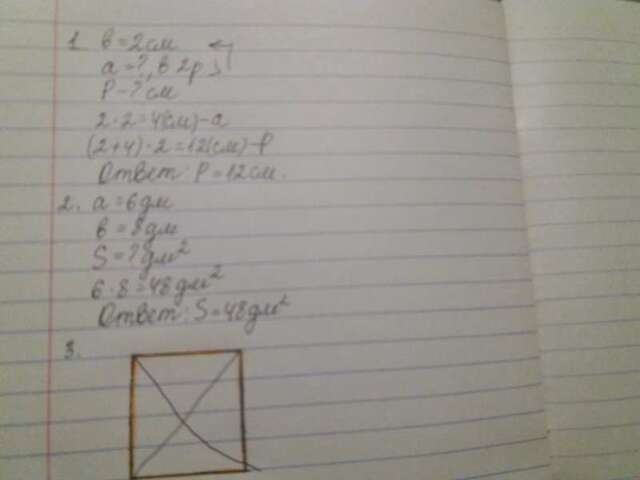 1. в = 2 см
а = ?, в 2 р >
Р = ? см
2 · 2 = 4 (см) - а
(2+4) · 2 = 12 (см) - Р
Ответ: Р = 12 см.
2. а = 6 дм
в = 8 дм
S = ? дм²
6 · 8 = 48 дм²
Ответ: S = 48 дм²
3.